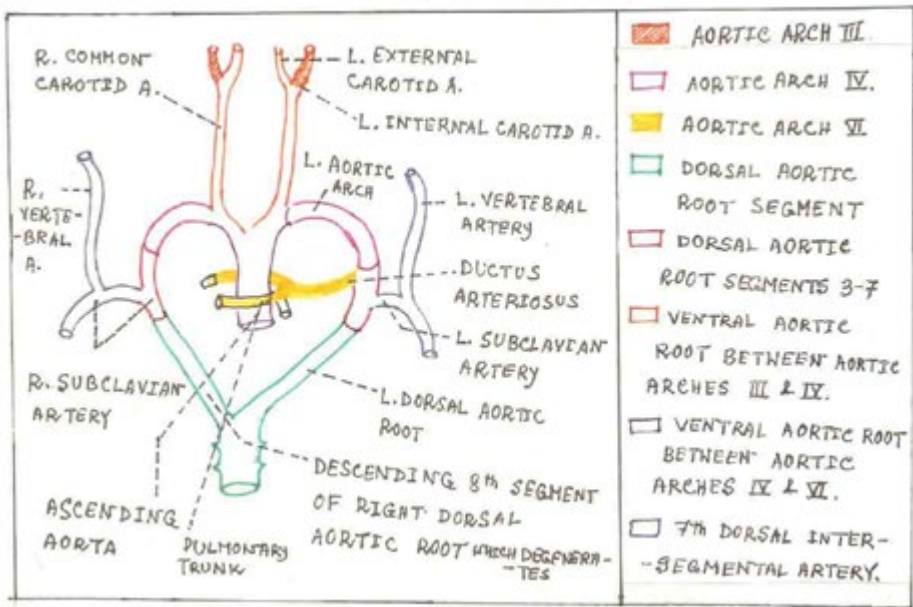 R. COMMON
CAROTID A.
L. EXTERNAL
CAROTID A.
L. INTERNAL CAROTID A.
L. AORTIC
ARCH
R.
VERTE-
BRAL
A.
L. VERTEBRAL
ARTERY
DUCTUS
ARTERIOSUS
L. SUBCLAVIAN
ARTERY
R. SUBCLAVIAN
ARTERY
L. DORSAL AORTIC
ROOT
ASCENDING
AORTA
PULMONARY
TRUNK
DESCENDING 8th SEGMENT
OF RIGHT DORSAL
AORTIC ROOT WHICH DEGENERA-
-TES
AORTIC ARCH III.
AORTIC ARCH IV.
AORTIC ARCH VI
DORSAL AORTIC
ROOT SEGMENT
DORSAL AORTIC
ROOT SEGMENTS 3-7
VENTRAL AORTIC
ROOT BETWEEN AORTIC
ARCHES III & IV.
VENTRAL AORTIC ROOT
BETWEEN AORTIC
ARCHES IV & VI.
7th DORSAL INTER-
-SEGMENTAL ARTERY.